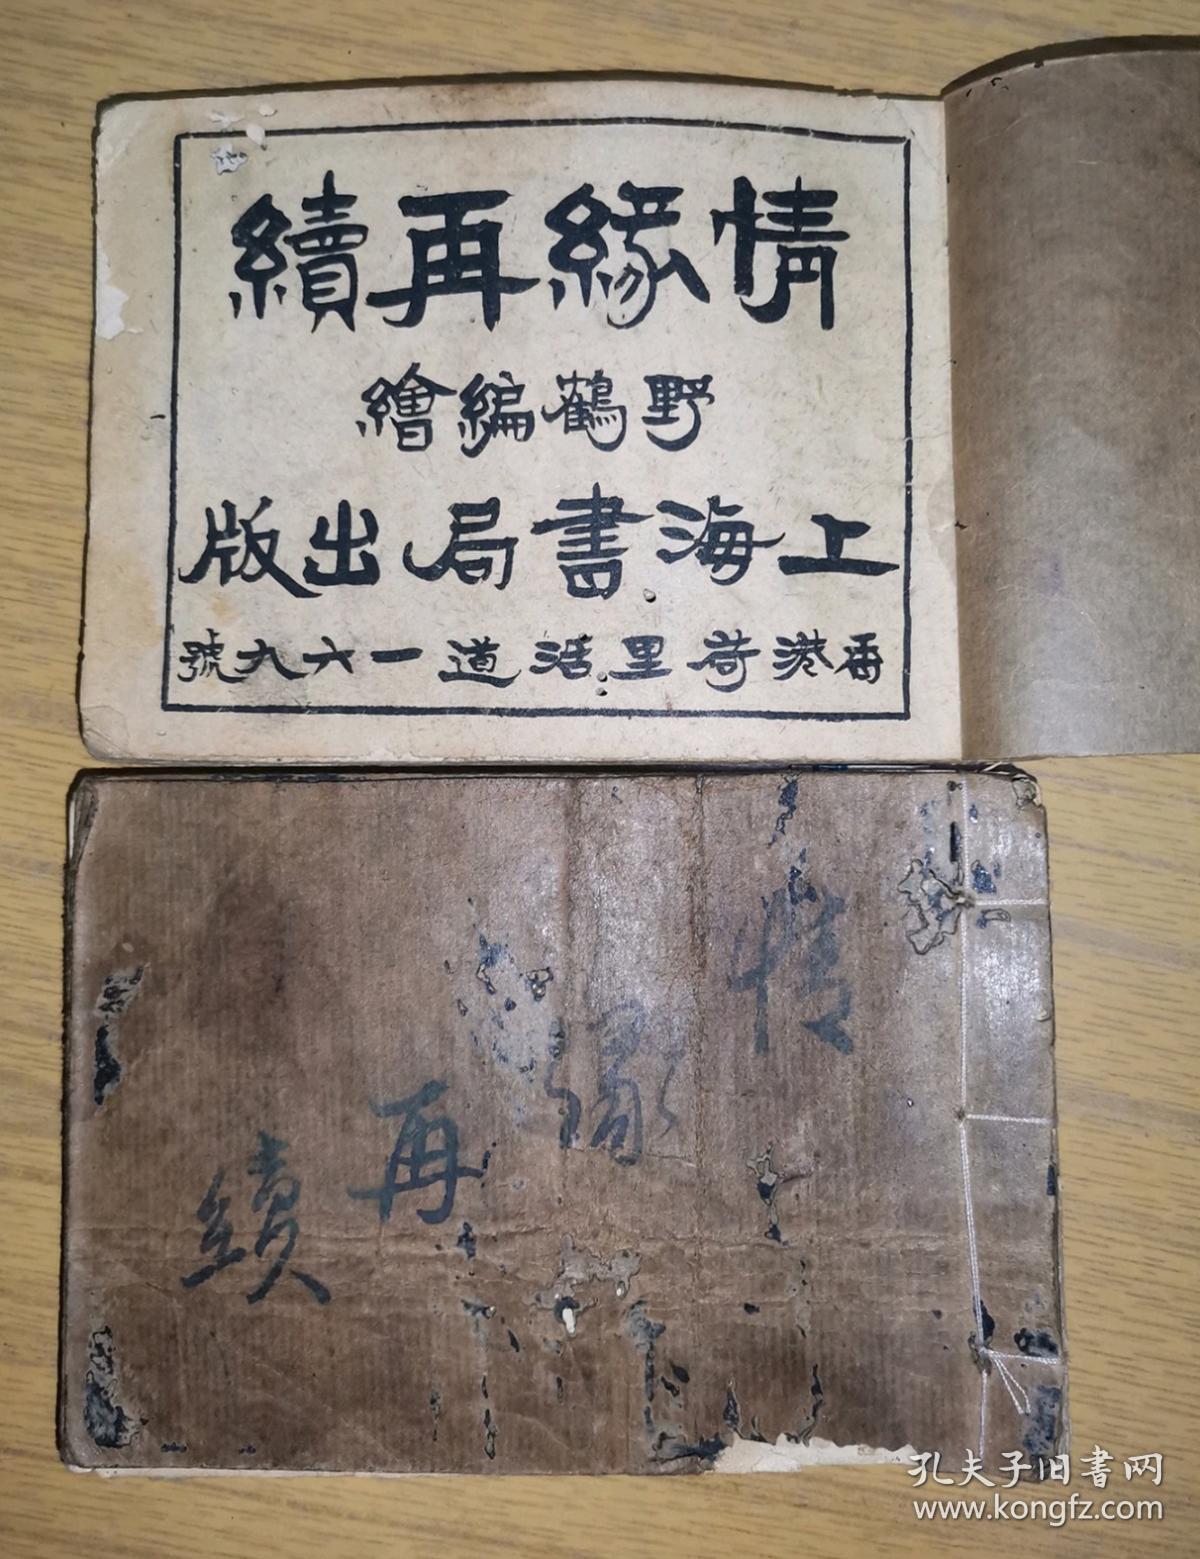 情緣再續
野鶴編繪
上海書局出版
香港荷里活道一六九號
情緣再續
孔夫子旧書网
www.kongfz.com